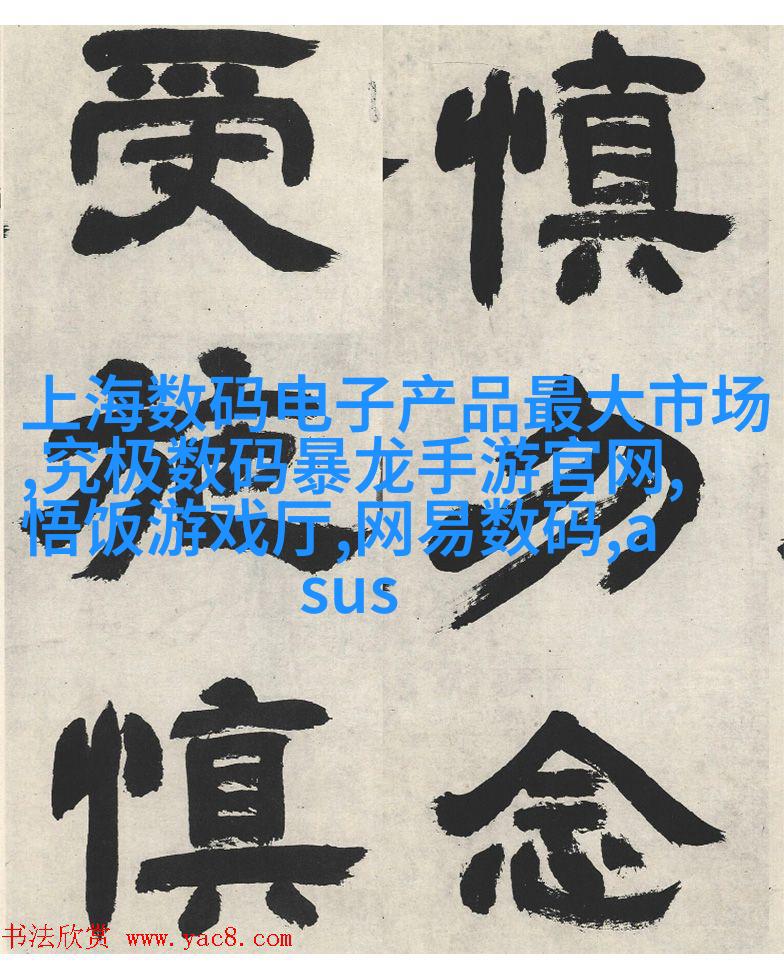 慎勿念
受施慎
上海数码电子产品最大市场
,究极数码暴龙手游官网,
悟饭游戏厅,网易数码,a
sus
书法欣赏 www.yac8.com